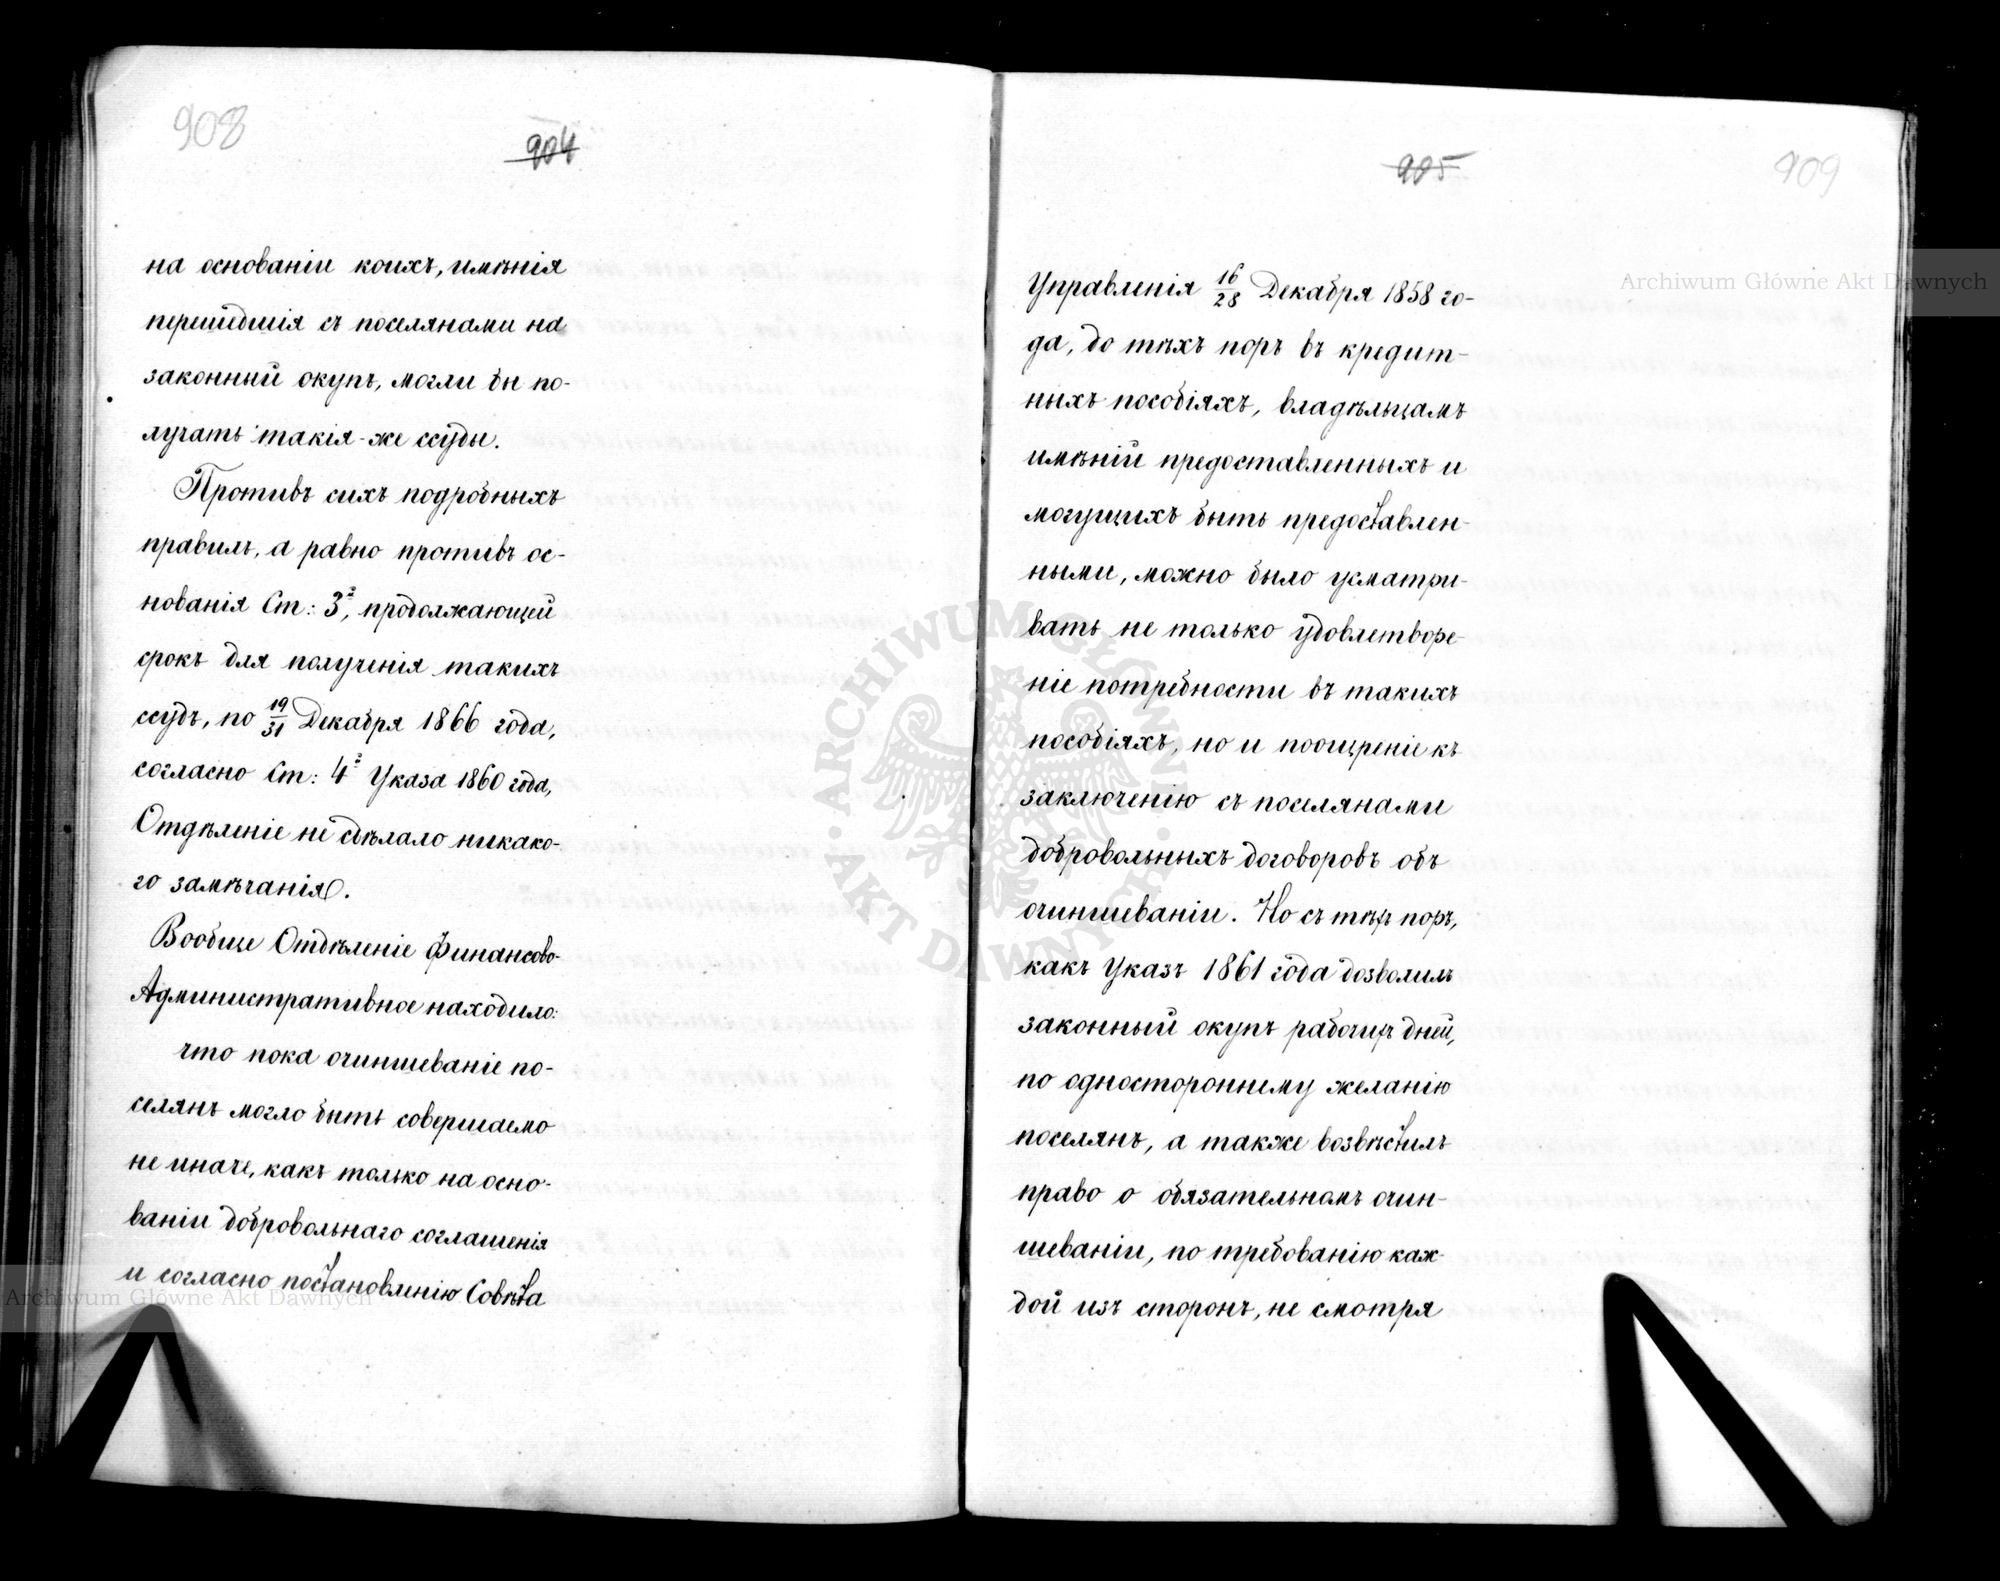 908
904
на основаніи коихъ, имѣнія
перешедшія съ поселянами на
законный окупъ, могли бы по-
лучать такія-же ссуды.
Противъ сихъ подробныхъ
правилъ, а равно противъ ос-
нованія Ст: 3й, продолжающей
срокъ для полученія такихъ
ссудъ, по 19/31 Декабря 1866 года,
согласно Ст: 4й Указа 1860 года,
Отдѣленіе не сдѣлало никако-
го замѣчанія.
Вообще Отдѣленіе Финансово-
Административное находило:
что пока очиншеваніе по-
селянъ могло быть совершаемо
не иначе, какъ только на осно-
ваніи добровольнаго соглашенія
и согласно постановленію Совѣта
905
909
Управленія 16/28 Декабря 1858 го-
да, до тѣхъ поръ въ кредит-
ныхъ пособіяхъ, владѣльцамъ
имѣній предоставленныхъ и
могущихъ быть предоставлен-
ными, можно было усматри-
вать не только удовлетворе-
ніе потребности въ такихъ
пособіяхъ, но и поощреніе къ
заключенію съ поселянами
добровольныхъ договоровъ объ
очиншеваніи. Но съ тѣхъ поръ,
какъ Указъ 1861 года дозволилъ
законный окупъ рабочихъ дней,
по одностороннему желанію
поселянъ, а также возвѣстилъ
право о обязательномъ очин-
шеваніи, по требованію каж-
дой изъ сторонъ, не смотря
Archiwum Główne Akt Dawnych
Archiwum Główne Akt Dawnych
ARCHIWUM GŁÓWNE
AKT DAWNYCH